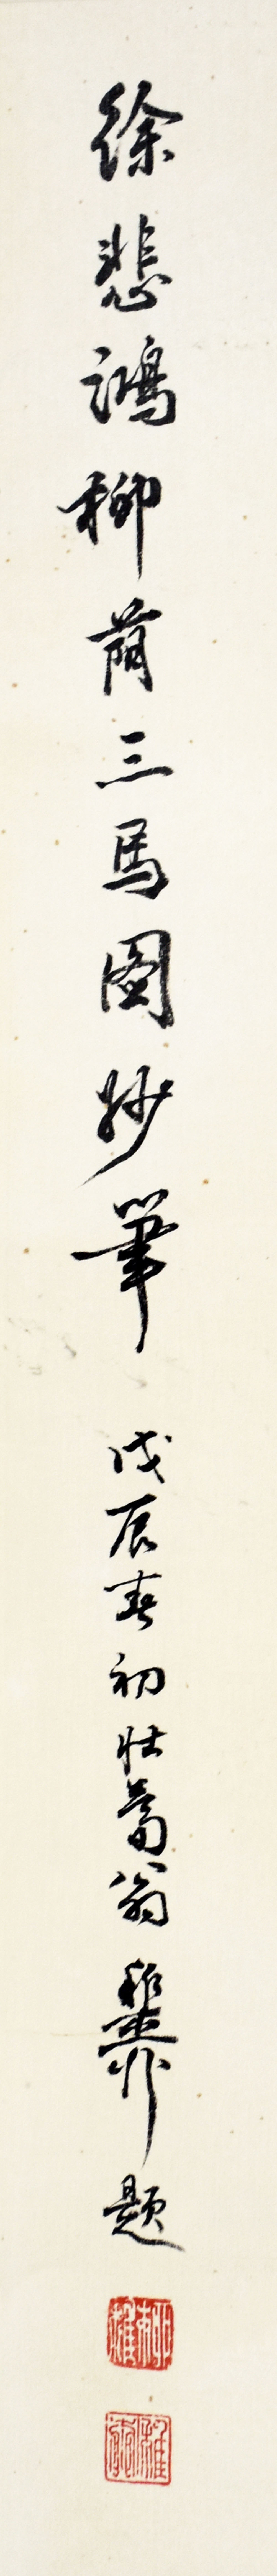 徐悲鴻柳荫三馬圖妙筆 戊辰春初壯暮翁稚柳題